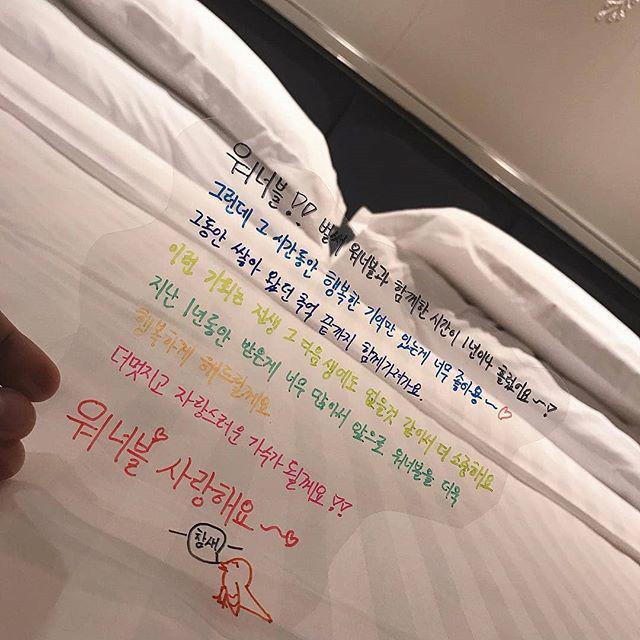 워너블!! 벌써 워너블과 함께한 시간이 1년이나 흘렀어요~♡
그런데 그 시간동안 행복한 기억만 있는게 너무 좋아용~♡
그동안 쌓아 왔던 추억 끝까지 함께가져가요.
이런 기회는 전생 그 다음 생에도 없을것 같아서 더 소중해요
지난 1년동안 받은게 너무 많아서 앞으로 워너블을 더욱
행복하게 해드릴게요
더멋지고 자랑스러운 가수가 될게요!!
워너블 사랑해요~♡
참새